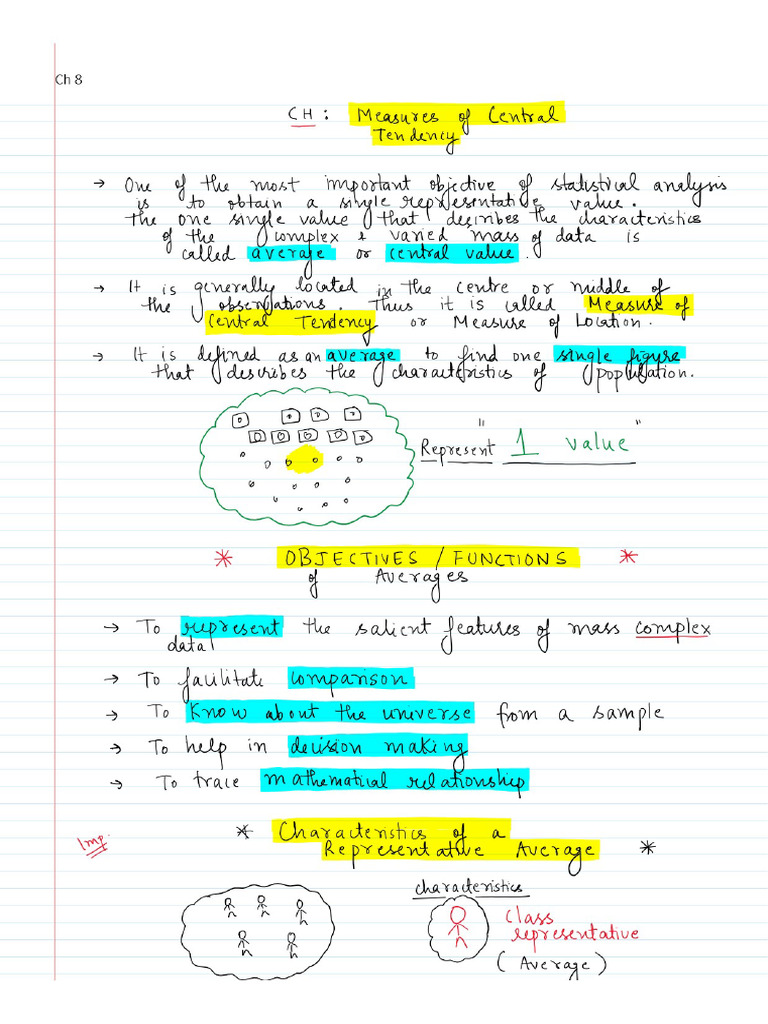 Ch 8
CH: Measures of Central
Tendency
→ One of the most important objective of statistical analysis
is to obtain a single representative value.
The one single value that describes the characteristics
of the complex & varied mass of data is
called average or central value.
→ It is generally located in the centre or middle of
the observations. Thus it is called Measure of
Central Tendency or Measure of Location.
→ It is defined as an average to find one single figure
that describes the characteristics of population.
Represent "1 value"
* OBJECTIVES / FUNCTIONS *
of Averages
→ To represent the salient features of mass complex
data
→ To facilitate comparison
→ To Know about the universe from a sample
→ To help in decision making
→ To trace mathematical relationship
Imp.
* Characteristics of a
Representative Average *
characteristics
Class
representative
(Average)